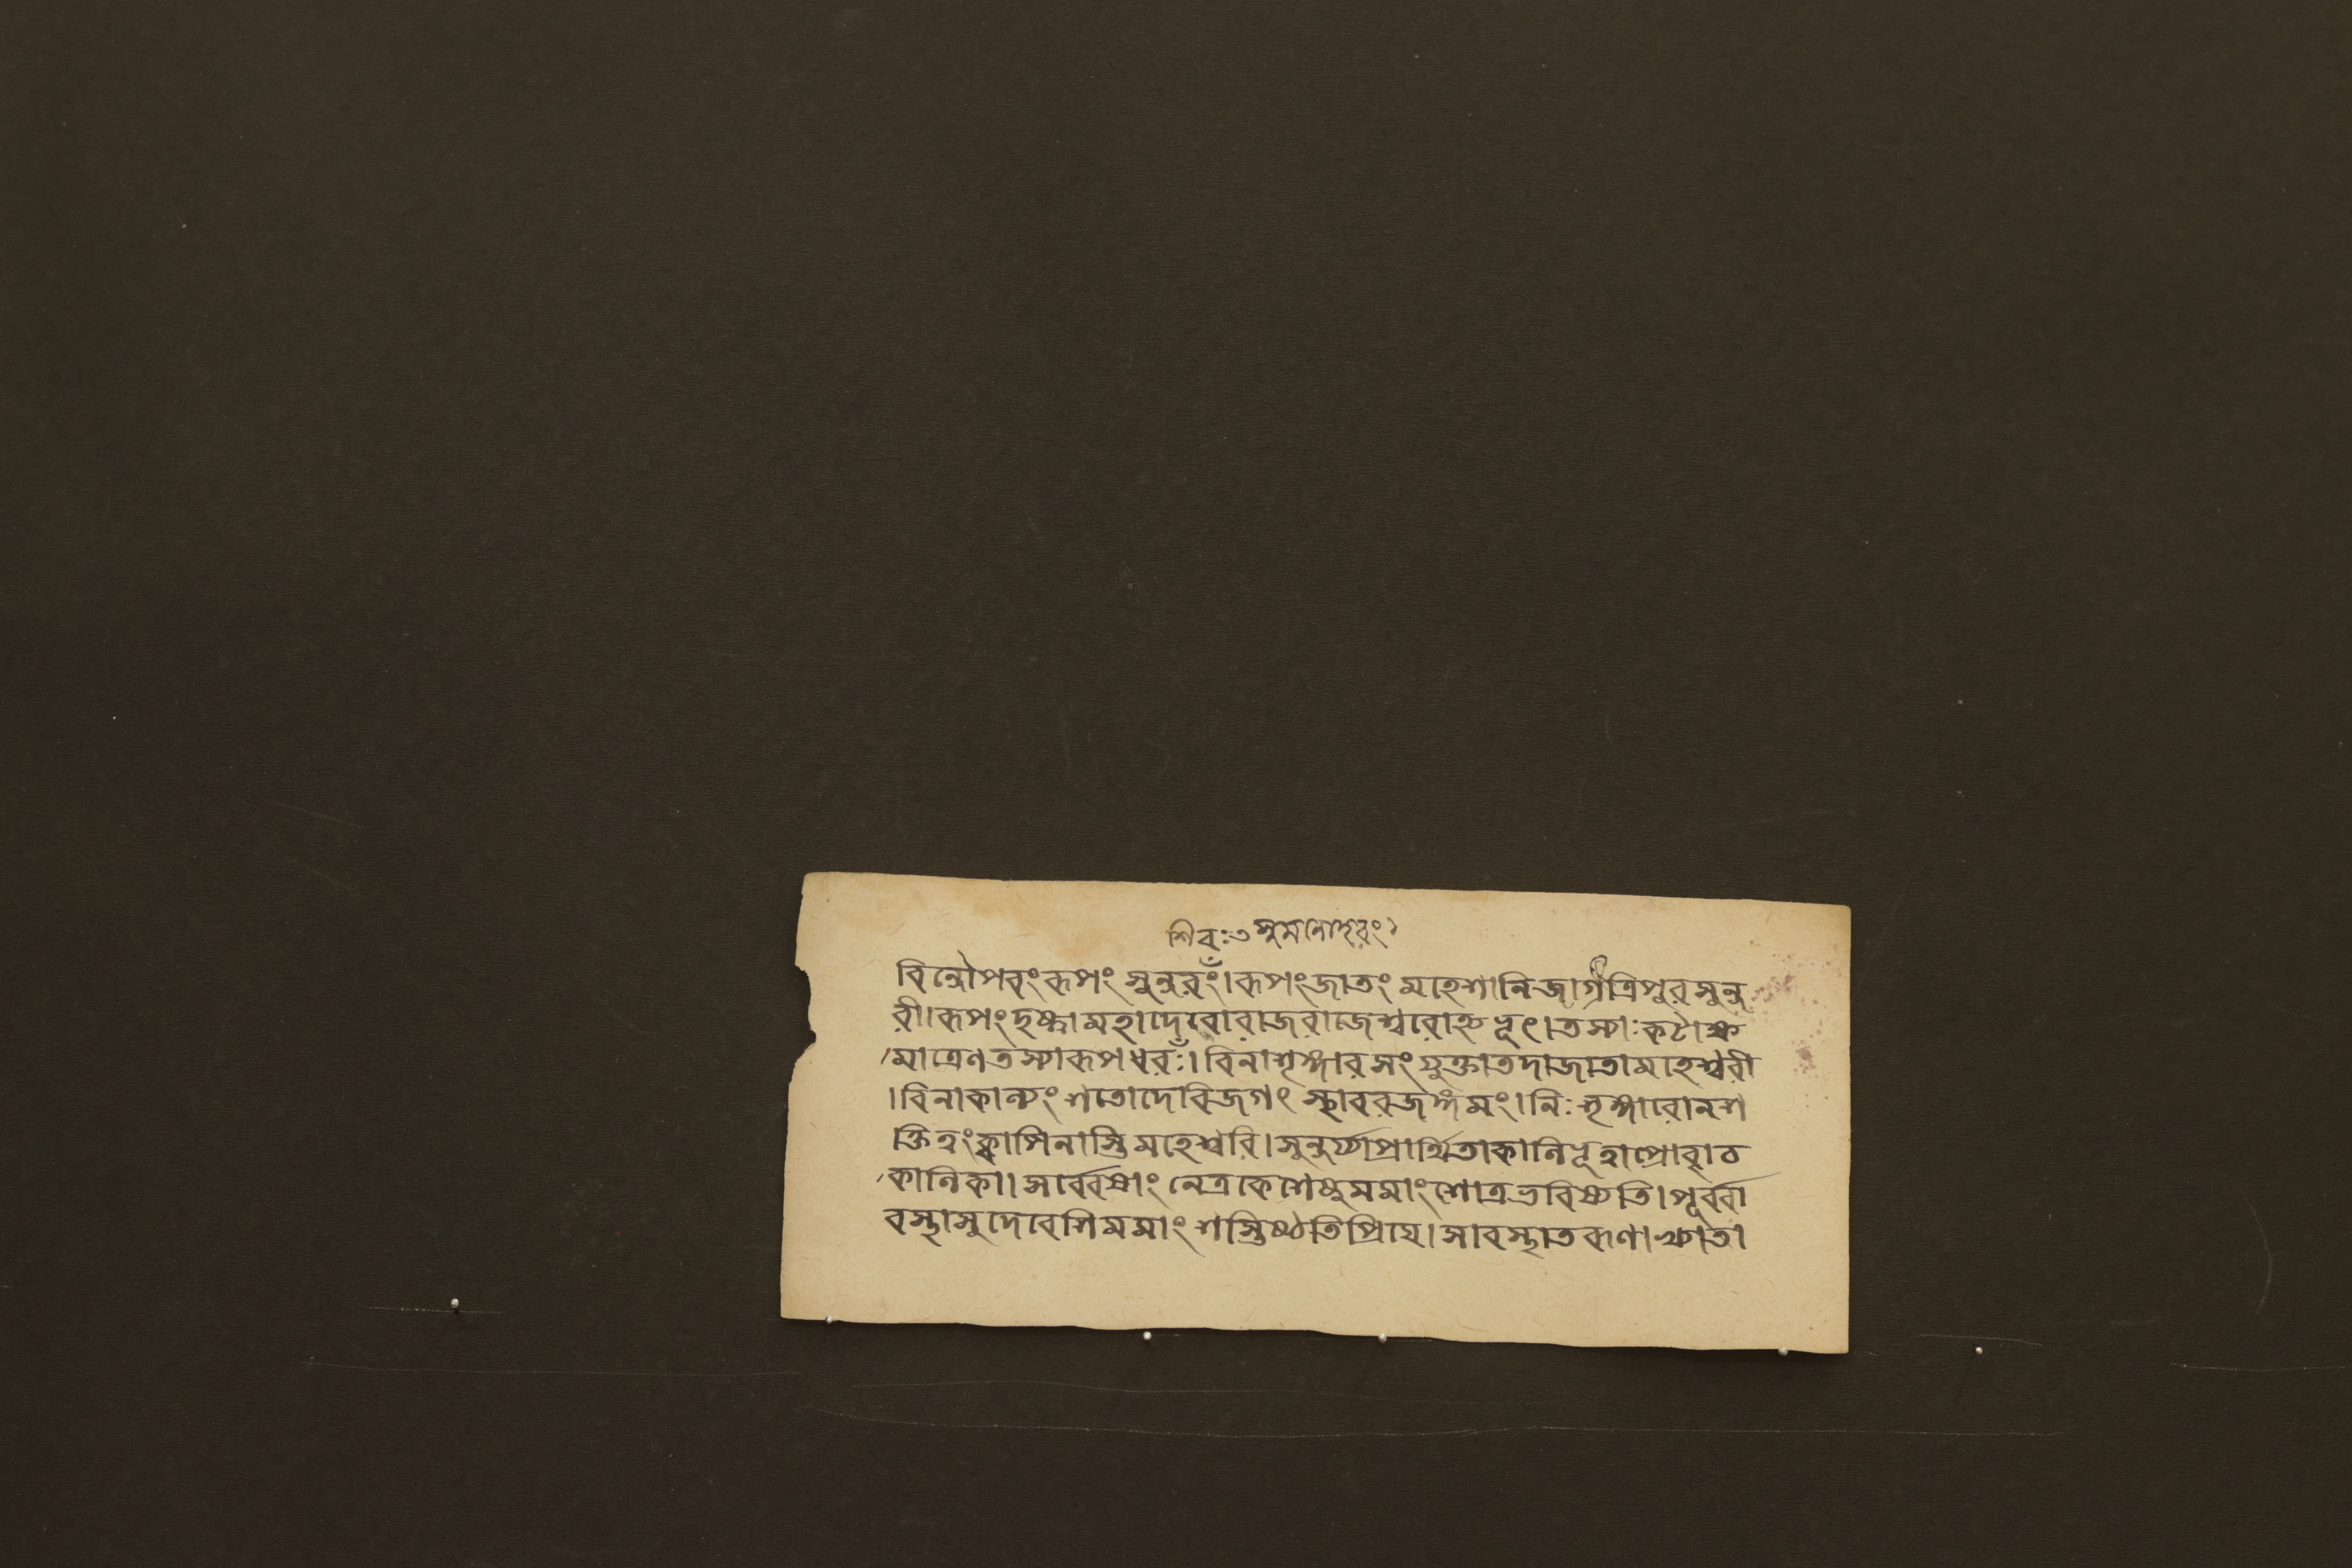 শিবঃ৩ সুমনোহরং১
বিন্দৌপরংরূপং সুন্দরংঁ।রূপংজাতং মহেশানিজাগ্রত্ত্রিপুরসুন্দ
রী।রূপংদৃষ্ট্বামহাদেবোরাজরাজেশ্বরোঽভূৎ।তস্যাঃকটাক্ষ
মাত্রেণতস্যারূপধরঁঃ।বিনাশৃঙ্গারসংযুক্তাতদাজাতামহেশ্বরী
।বিনাকান্তংশতোদেবিজগৎ স্থাবরজঙ্গমং।নিঃশৃঙ্গারোনশ
ক্তিত্বংক্বাপিনাস্তিমহেশ্বরি।সুন্দর্য্যাপ্রার্থিতাকালিভূত্বাপ্রোবাচ
কালিকা।সর্ব্বেষাং নেত্রকেশেষুমমাংশোত্রভবিষ্যতি।পূর্ব্বা
বস্থাসুদেবেশিমমাংশস্তিষ্ঠতিপ্রিয়ে।সাবস্থাতরুণাখ্যাতা